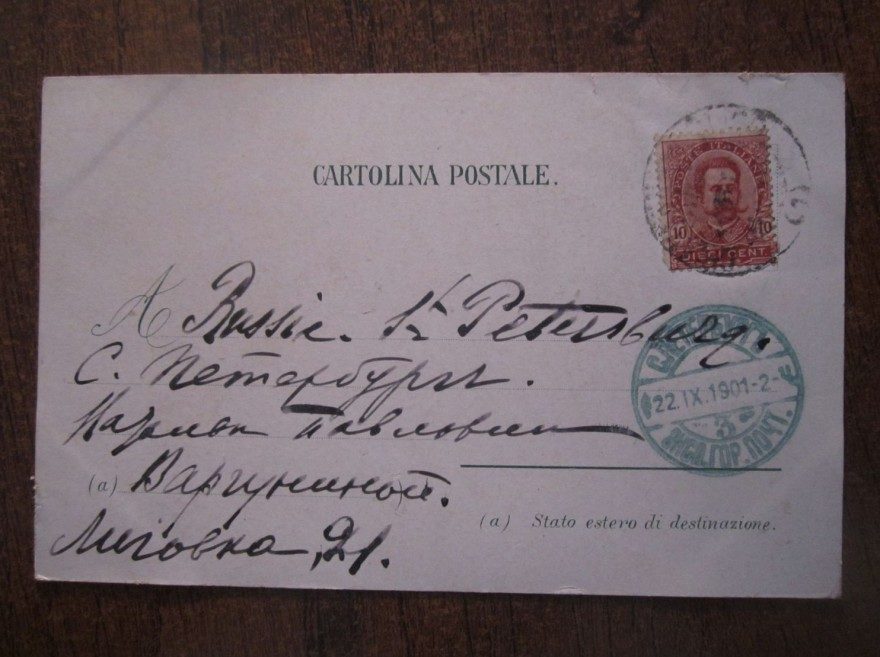 CARTOLINA POSTALE.
POSTE ITALIANE
10 10
DIECI CENT
A Russie. St Petersburg.
С. Петербургъ.
Павловнѣ
(a) Варгуниной.
Лиговка, 21.
22.IX.1901-2-
3
ГОР. ПОЧТ.
(a) Stato estero di destinazione.